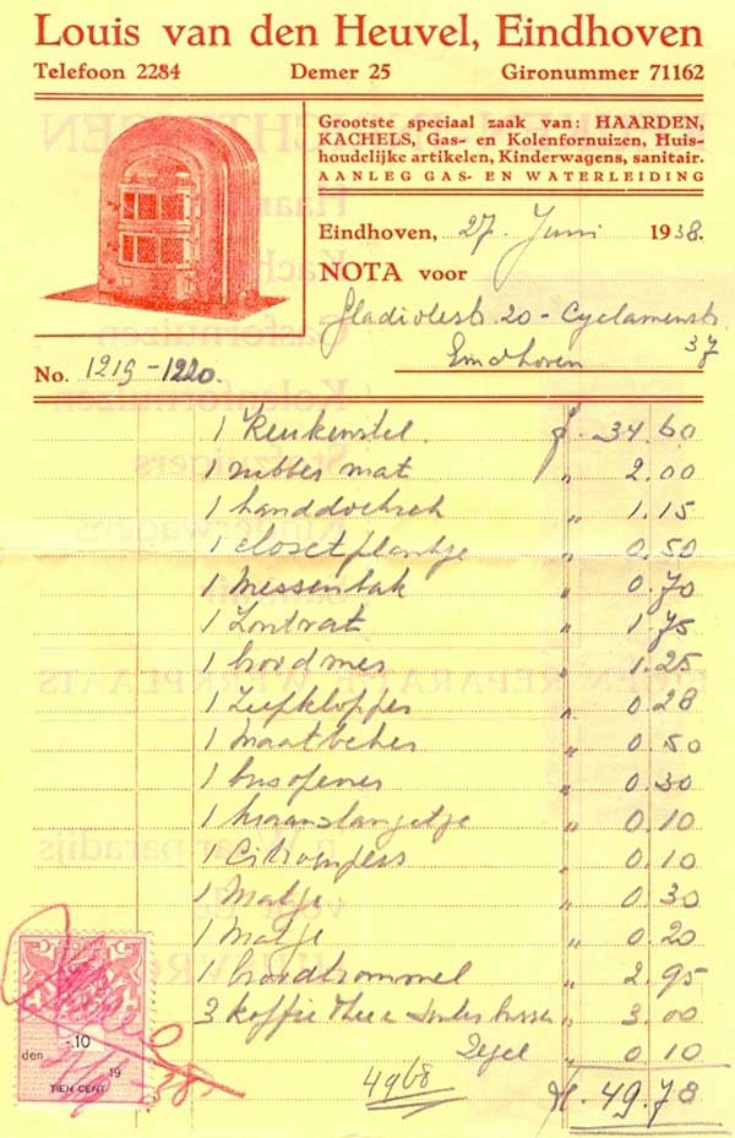 Louis van den Heuvel, Eindhoven
Telefoon 2284 Demer 25 Gironummer 71162
Grootste speciaal zaak van: HAARDEN,
KACHELS, Gas- en Kolenfornuizen, Huis-
houdelijke artikelen, Kinderwagens, sanitair.
AANLEG GAS- EN WATERLEIDING
Eindhoven, 27. Juni 1938.
NOTA voor
Gladiolestr. 20 - Cyclamenstr.
37
Eindhoven
No. 1219 - 1220.
1 Keukenstel. f. 34.60
1 rubber mat " 2.00
1 handdoekrek " 1.15
1 closetplankje " 0.50
1 Messenbak " 0.70
1 Zoutvat " 1.75
1 broodmes " 1.25
1 Zeefklopper " 0.28
1 Maatbeker " 0.50
1 busopener " 0.30
1 kraanslangetje " 0.10
1 Citroenpers " 0.10
1 Matje " 0.30
1 Matje " 0.20
1 broodtrommel " 2.95
3 koffie Thee Suiker bussen " 3.00
Zegel " 0.10
4968 fl. 49.78
.10
den 19
TIEN CENT